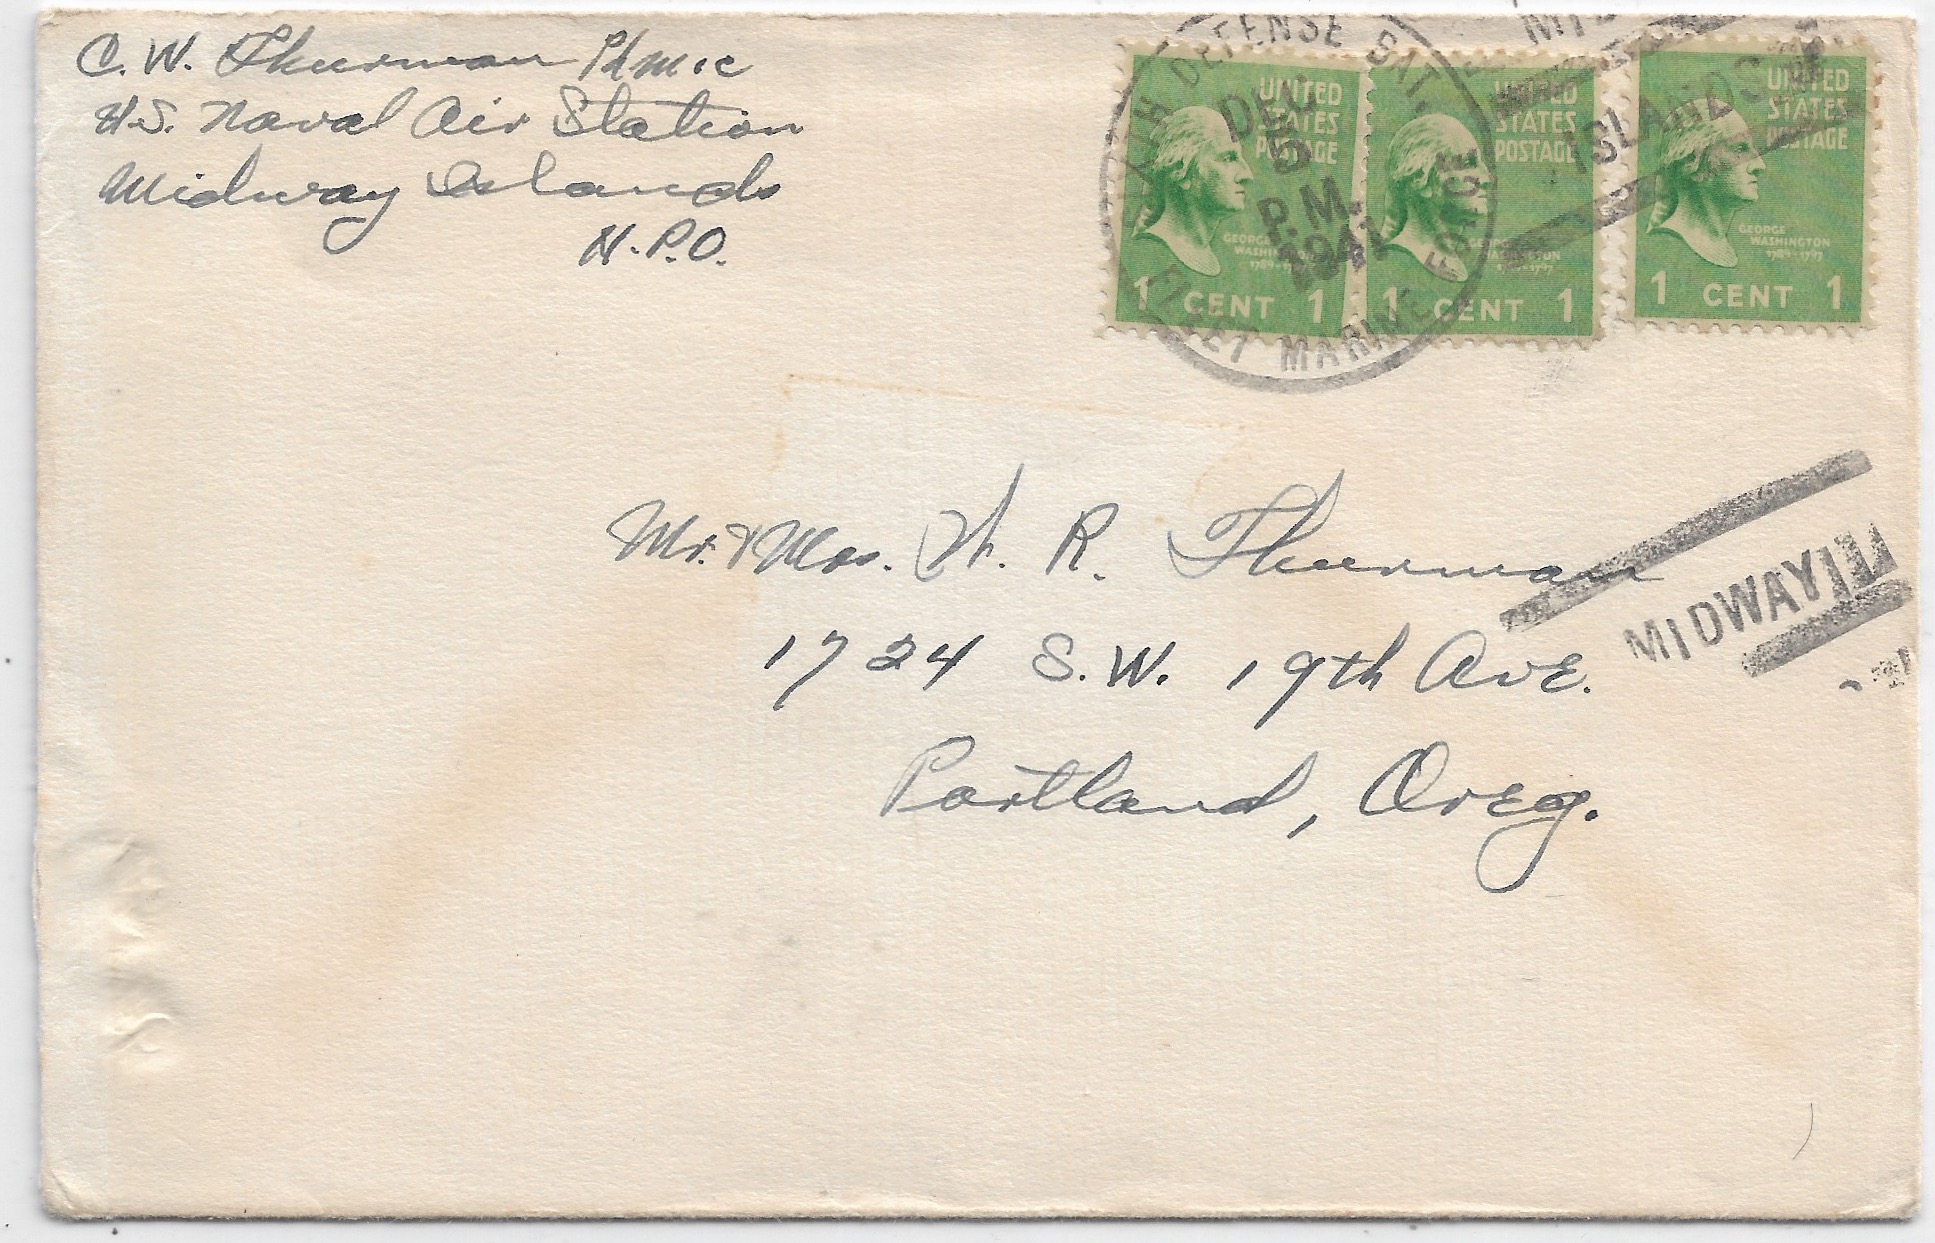 C. W. Thurman PhM1c
U.S. Naval Air Station
Midway Islands
N.P.O.
DEFENSE BAT.
FLEET MARINE FORCE
DEC
5
P.M.
1941
UNITED
STATES
POSTAGE
GEORGE
WASHINGTON
1789-1797
1 CENT 1
UNITED
STATES
POSTAGE
GEORGE
WASHINGTON
1789-1797
1 CENT 1
UNITED
STATES
POSTAGE
GEORGE
WASHINGTON
1789-1797
1 CENT 1
ISLANDS
MIDWAY
Mr. & Mrs. W. R. Thurman
1724 S.W. 19th Ave.
Portland, Oreg.